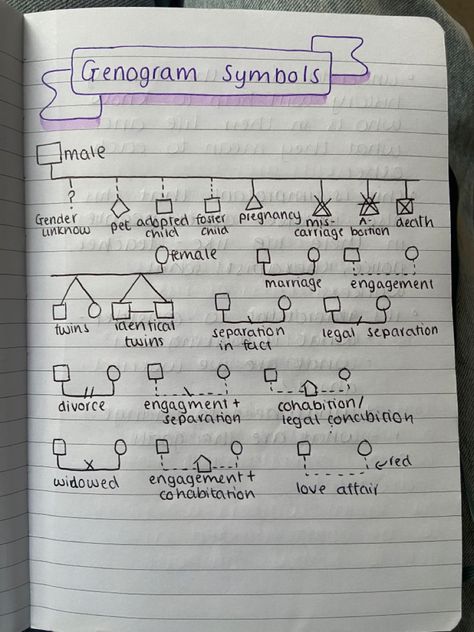 Genogram Symbols
male
?
Gender
unknow
pet
adopted
child
foster
child
pregnancy
mis-
carriage
A-
bortion
death
female
marriage
engagement
twins
identical
twins
separation
in fact
legal separation
divorce
engagment +
separation
cohabition/
legal concibition
widowed
engagement +
cohabitation
love affair
red